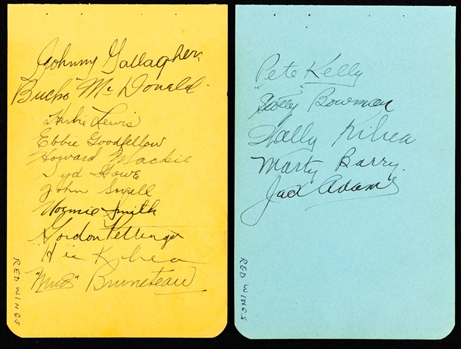 Johnny Gallagher
Bucko McDonald
Herbie Lewis
Ebbie Goodfellow
Howard Mackie
Syd Howe
John Sorrell
Normie Smith
Gordon Pettinger
Hec Kilrea
"Mud" Bruneteau
RED WINGS
Pete Kelly
"Scotty" Bowman
Wally Kilrea
Marty Barry
Jack Adams
RED WINGS